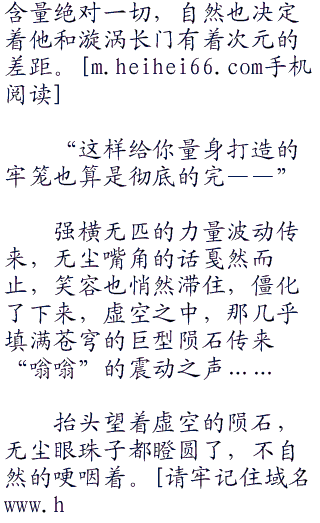 含量绝对一切，自然也决定
着他和漩涡长门有着次元的
差距。[m.heihei66.com手机
阅读]
“这样给你量身打造的
牢笼也算是彻底的完——”
强横无匹的力量波动传
来，无尘嘴角的话戛然而
止，笑容也悄然滞住，僵化
了下来，虚空之中，那几乎
填满苍穹的巨型陨石传来
“嗡嗡”的震动之声……
抬头望着虚空的陨石，
无尘眼珠子都瞪圆了，不自
然的哽咽着。[请牢记住域名
www.h